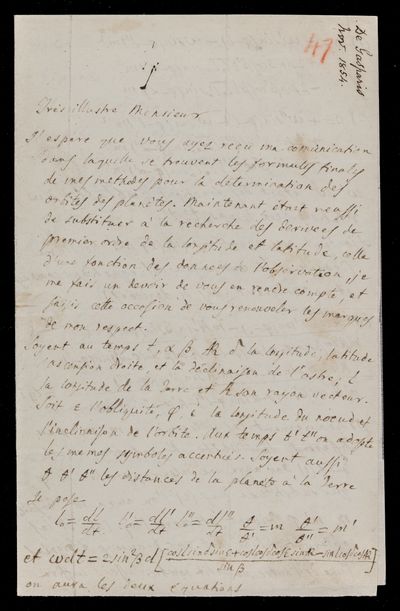 De Gasparis
Nov. 1854.
47
Très illustre Monsieur
J'espere que vous ayez reçu ma comunication
dans laquelle se trouvent les formules finales
de mes methodes pour la determination des
orbites des planètes. Maintenant étant reussi
de substituer à la recherche des derivees de
premier ordre de la longitude et latitude, celle
d'une fonction des données de l'observation, je
me fais un devoir de vous en rendre compte, et
saisis cette occasion de vous renouveler les marques
de mon respect.
Soyent au temps t, α β, AR δ la longitude, latitude
l'ascension droite, et la déclinaison de l'astre; l
la longitude de la Terre et R son rayon vecteur.
Soit ε l'obliquité, φ i la longitude du noeud et
l'inclinaison de l'orbite. Aux temps t' t'' on adopte
les memes symboles accentués. Soyent aussi
Δ Δ' Δ'' les distances de la planete à la Terre
Je pose
l₀ = dl/dt l'₀ = dl'/dt l''₀ = dl''/dt Δ/Δ' = m Δ'/Δ'' = m'
et ωdt = 2sin²β d
on aura les deux equations